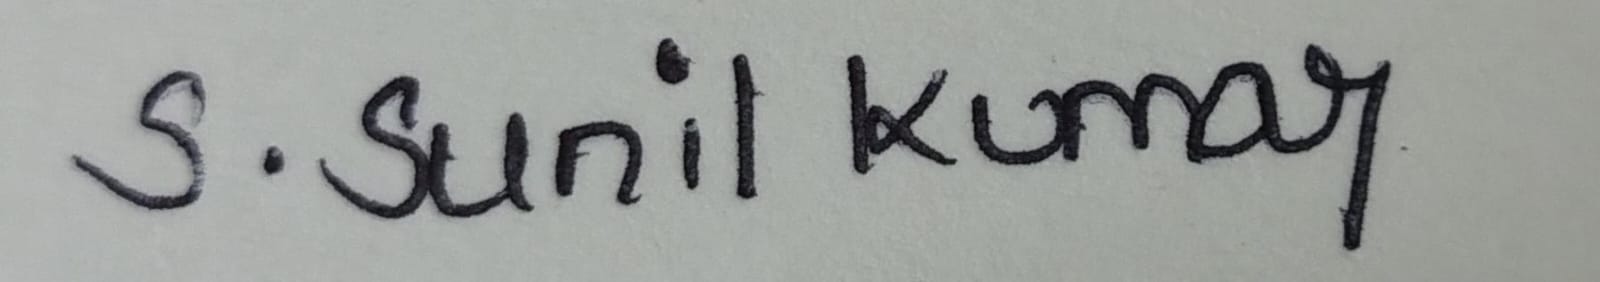 S. Sunil Kumar